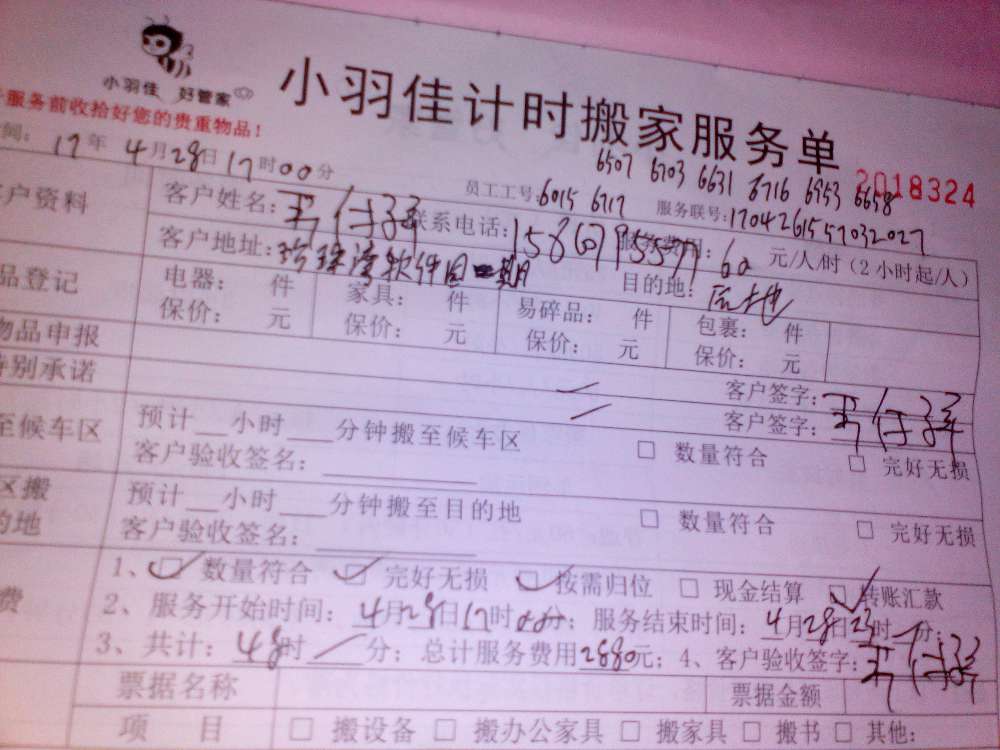 小羽佳 好管家
小羽佳计时搬家服务单
服务前收拾好您的贵重物品!
6507 6703 6631 6716 6953 6658
2018324
间: 17年4月28日17时00分
员工工号: 6015 6717 服务联号: 17042615 57032027
户资料 客户姓名: 联系电话: 服务费用: 60 元/人/时(2小时起/人)
客户地址: 珍珠湾软件园一期 目的地: 后地
品登记 电器: 件 家具: 件 易碎品: 件 包裹: 件
保价: 元 保价: 元 保价: 元 保价: 元
物品申报 客户签字:
特别承诺 客户签字:
至候车区 预计__小时___分钟搬至候车区 □ 数量符合 □ 完好无损
客户验收签名:
区搬 预计__小时___分钟搬至目的地 □ 数量符合 □ 完好无损
的地 客户验收签名:
费 1、☑ 数量符合 ☑ 完好无损 ☑ 按需归位 □ 现金结算 ☑ 转账汇款
2、服务开始时间: 4月28日17时00分; 服务结束时间: 4月28日23时 分;
3、共计: 48时/分; 总计服务费用2880元; 4、客户验收签字:
票据名称 票据金额
项 目 □ 搬设备 □ 搬办公家具 □ 搬家具 □ 搬书 □ 其他: